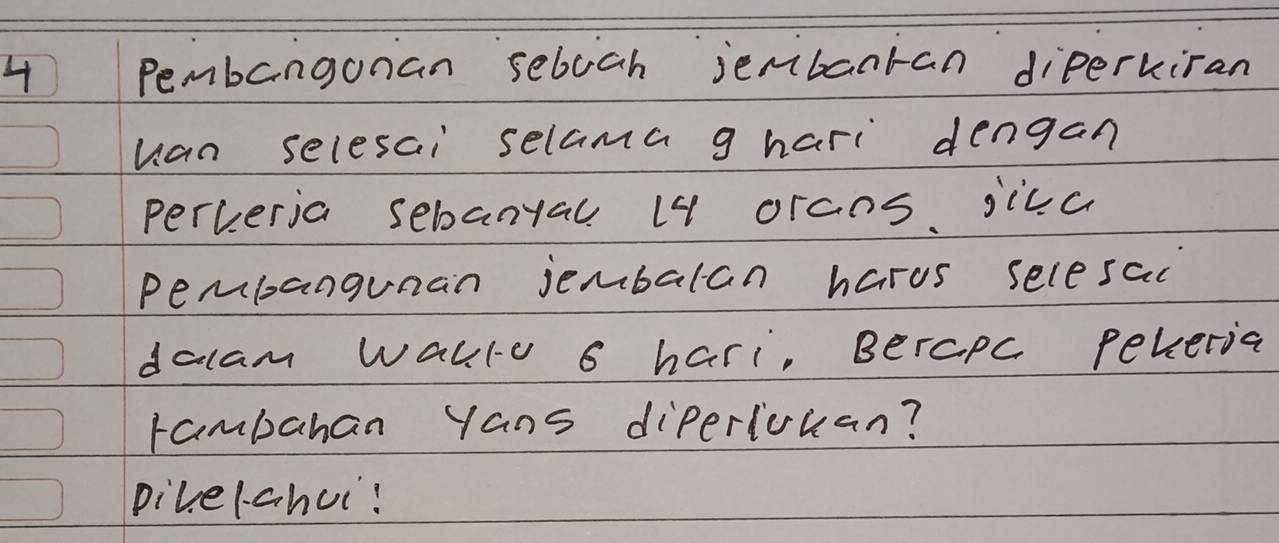 4 Pembangunan sebuah jembantan diperkiran
kan selesai selama 9 hari dengan
perkerja sebanyak 14 orang. jika
pembangunan jembatan harus selesai
dalam waktu 6 hari. Berapa pekerja
tambahan yang diperlukan?
Diketahui!